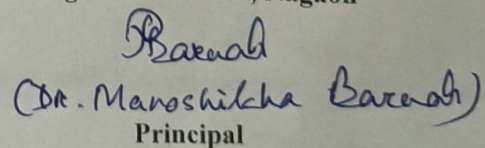 Baruah
(DR. Manoshikha Baruah)
Principal